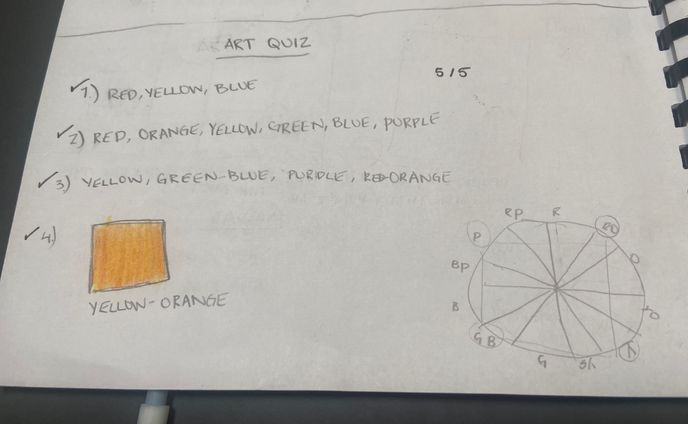 ART QUIZ
5/5
1.) RED, YELLOW, BLUE
2) RED, ORANGE, YELLOW, GREEN, BLUE, PURPLE
3) YELLOW, GREEN-BLUE, PURPLE, RED-ORANGE
4.)
YELLOW-ORANGE
RP R RO
P
O
BP
B
YO
GB
Y
G